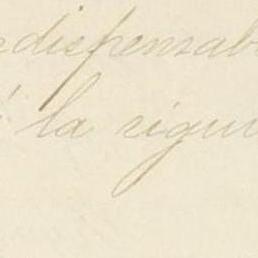 edispensab
á la rigur